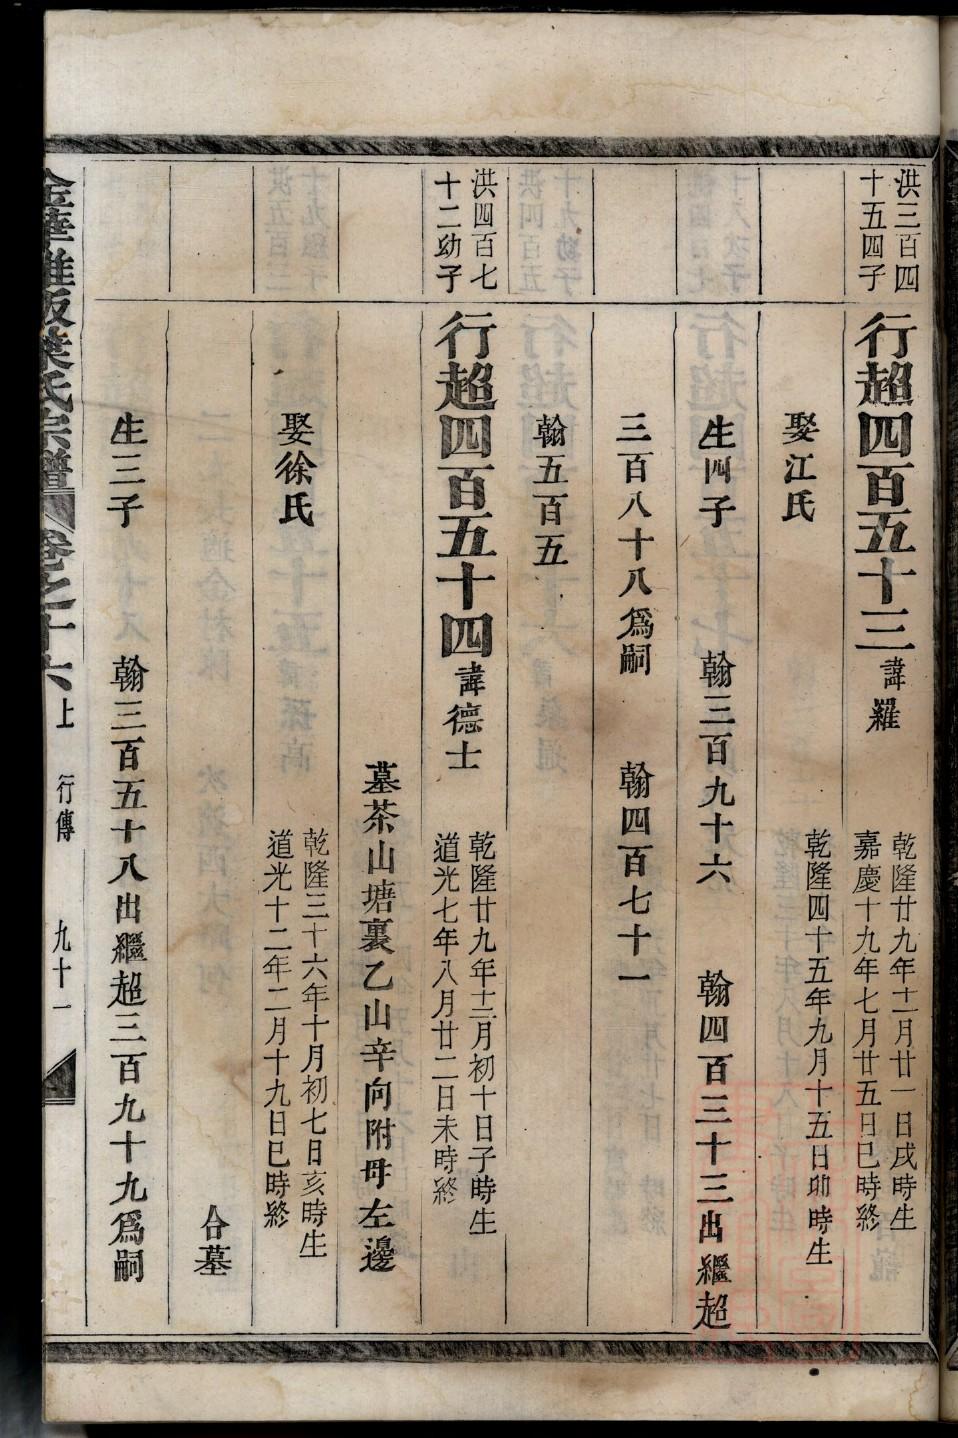 洪三百四
十五四子
行超四百五十三 諱羅
乾隆廿九年十二月廿一日戌時生
嘉慶十九年七月廿五日巳時終
娶江氏
乾隆四十五年九月十五日卯時生
生四子 翰三百九十六 翰四百三十三出繼超
三百八十八爲嗣 翰四百七十一
翰五百五
洪四百七
十二幼子
行超四百五十四 諱德士
乾隆廿九年十二月初十日子時生
道光七年八月廿二日未時終
墓茶山塘裏乙山辛向附母左邊
娶徐氏
乾隆三十六年十月初七日亥時生
道光十二年二月十九日巳時終
合墓
生三子 翰三百五十八出繼超三百九十九爲嗣
葉氏宗譜 卷之十六上 行傳 九十一